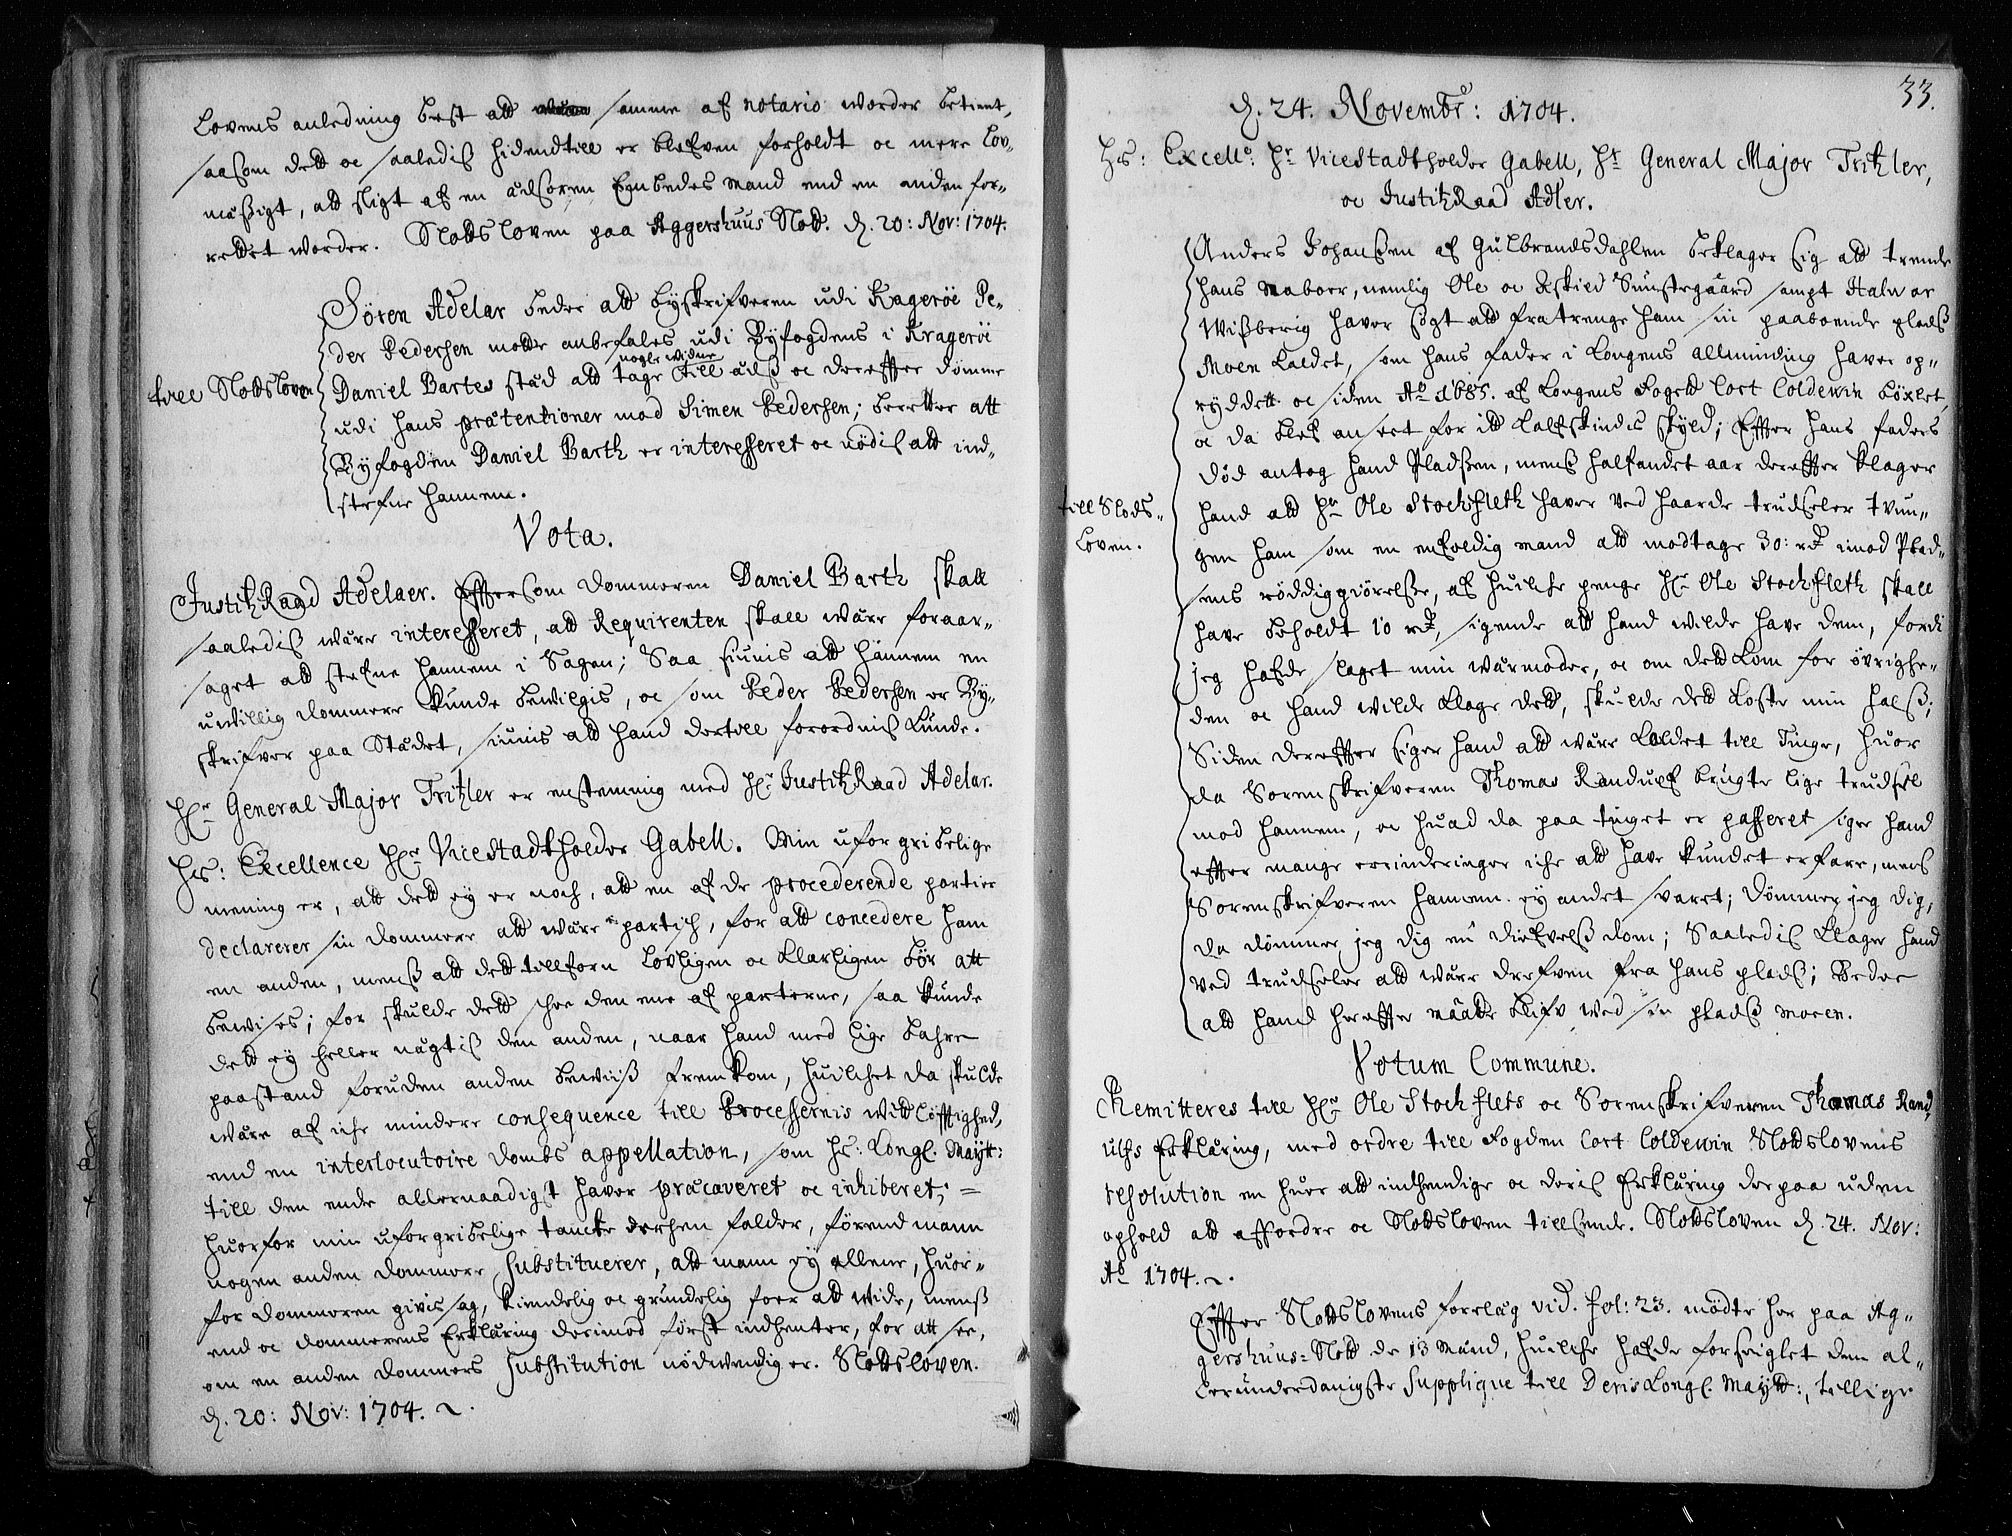 Lovens anledning best att samme af notario worder betient,
saasom dett oc saaledis hidendtill er blefven forholdt oc mere Lov-
mässigt, att sligt af en edsoren Embedes mand end en anden for-
rettet worder. Slottsloven paa Aggershuus Slott. d. 20: Nov: 1704.
Sören Adelar beder att byskrifveren udi Krageröe Pe-
der Pedersen motte anbefales udi Byfogdens i Krageröe
nogle widne
till Slottsloven
Daniel Bartes stæd att tage till eeds oc derefter dömme
udi hans prætentioner mod Simen Pedersen; beretter att
Byfogden Daniel Barth er interesseret oc nödis att ind-
stefne hannem.
Vota.
JustitzRaad Adelaer. Effter som dommeren Daniel Barth skall
saaledis wære interesseret, att Requirenten skall wære foraar-
saget att stefne hannem i Sagen; Saa siunis att hannem en
uwillig dommere kunde bewilgis, oc som Peder Pedersen er By-
skrifver paa Stædet, siunis att hand dertill forordnis kunde.
Hr General Major Tritzler er enstemmig med Hr JustitzRaad Adelar.
Hs: Excellence Hr ViceStadtholder Gabell. Min uforgribelige
mening er, att dett ey er noch, att en af de procederende partier
declarerer sin dommere att wære partisch, for att concedere ham
en anden, menss att dett tillforn lovligen oc klarligen bör att
bewises; for skulde dett schee den ene af parterne, saa kunde
dett ey heller nægtis den anden, naar hand med lige bahre
paastand foruden anden bewiiss fremkom, huilchet da skulde
wære af iche mindere consequence till Processernis widtlöfftighed,
end en interlocutoire dombs appellation, som Hs: Kongl. Maytt:
till den ende allernaadigst haver præcaveret oc inhiberet; =
huorfor min uforgribelige tancke derhen falder, förend mann
nogen anden dommere substituerer, att mann ey allene, huor-
for dommeren givis sag, kiendelig oc grundelig foer att wide, menss
end oc dommerens Erklæring derimod först indhenter, for att see,
om en anden dommers substitution nödwendig er. Slottsloven.
d. 20: Nov: 1704.
33.
d. 24. Novembr: 1704.
Hs: Excell: Hr ViceStadtholder Gabell, Hr General Major Tritzler,
oc JustitzRaad Adler.
Anders Johanssen af Gulbrandsdahlen beklager sig att trende
hans naboer, nemlig Ole oc Eskied Sunstegaard sampt Halvor
Wissberig haver sögt att fratrenge ham sin paaboende pladss
Moen kaldet, som hans fader i Kongens allminding haver op-
ryddett oc siden Ao 1685. af Kongens Fogett Cort Coldewin böxlet,
oc da blef ansett for itt kalfskindis skyld; Effter hans faders
död antog hand Pladssen, menss halfandet aar dereffter klager
till Slods-
Loven.
hand att Hr Ole Stochfleth haver ved haarde trudseler tvun-
gen ham som en enfoldig mand att modtage 30: rdr imod Plad-
sens röddiggiörelse, af huilche penge Hr Ole Stochfleth skall
have beholdt 10 rdr, sigende att hand wilde have dem, fordi
jeg hafde slaget min wærmoder, oc om dett kom for øvrighe-
den oc hand wilde klage dett, skulde dett koste min halss;
Siden dereffter siger hand att wære kaldet till Tinge, huor
da Sorenskrifveren Thomas Randulf brugte lige trudsel
mod hannem, oc huad da paa tinget er passeret siger hand
effter mange erinderinger iche att have kundet erfare, mens
Sorenskrifveren hannem ey andet svaret; dömmer jeg dig,
da dömmer jeg dig en diefvelss dom; Saaledis klager hand
ved trudseler att wære drefven fra hans pladss; Beder
att hand hereffter maatte blifv wed sin pladss moen.
Votum Commune.
Remitteres till Hr Ole Stochflets oc Sorenskrifveren Thomas Rand,
ulfs Erklæring, med ordre till Fogden Cort Coldewin Slottslovens
resolution en huer att indhendige oc deris Erklæring derpaa uden
ophold att affordre oc Slottsloven tillsende. Slottsloven d. 24. Nov:
Ao 1704.
Effter Slottslovens forelæg vid. fol: 23. mödte her paa Ag-
gershuus-Slott de 13 Mænd, huilche hafde forseiglet den al-
lerunderdanigste Supplique till Deris Kongl. Maytt:, tillige